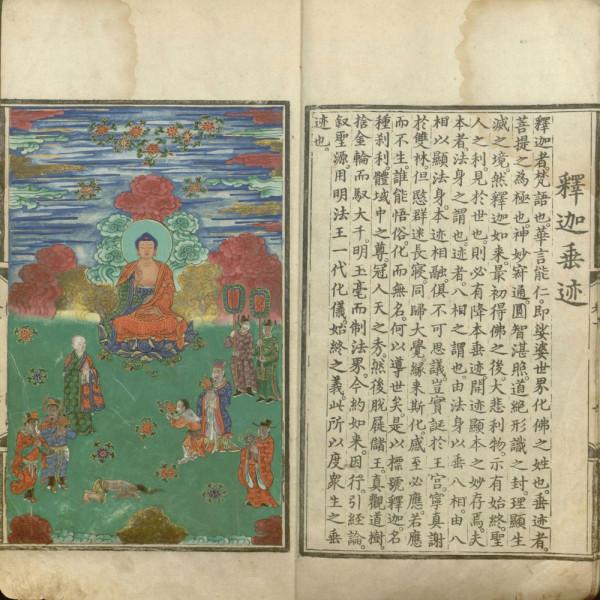 釋迦垂迹
釋迦者。梵語也。華言能仁。即娑婆世界化佛之姓也。垂迹者。
菩提之為極也。神妙寂通。圓智湛照。道絶形識之封。理顯生
滅之境。然釋迦如來。最初得佛之後。大悲利物。示有始終。聖
人之利見於世也。則必有降本垂迹開迹顯本之妙存焉。夫
本者。法身之謂也。迹者。八相之謂也。由法身以垂八相。由八
相以顯法身。本迹相融。俱不可思議。豈實誕於王宮。寧真謝
於雙林。但愍群迷長寢。同歸大覺。緣来斯化。感至必應。若應
而不生。誰能悟俗。化而無名。何以導世矣。是以標號釋迦。名
種剎利。體域中之尊。冠人天之秀。然後脫屣儲王。真觀道樹。
捨金輪而馭大千。明玉毫而制法界。今約如来。因行。引経論。
叙聖源。用明法王一代化儀。始終之義。此所以度衆生之垂
迹也。